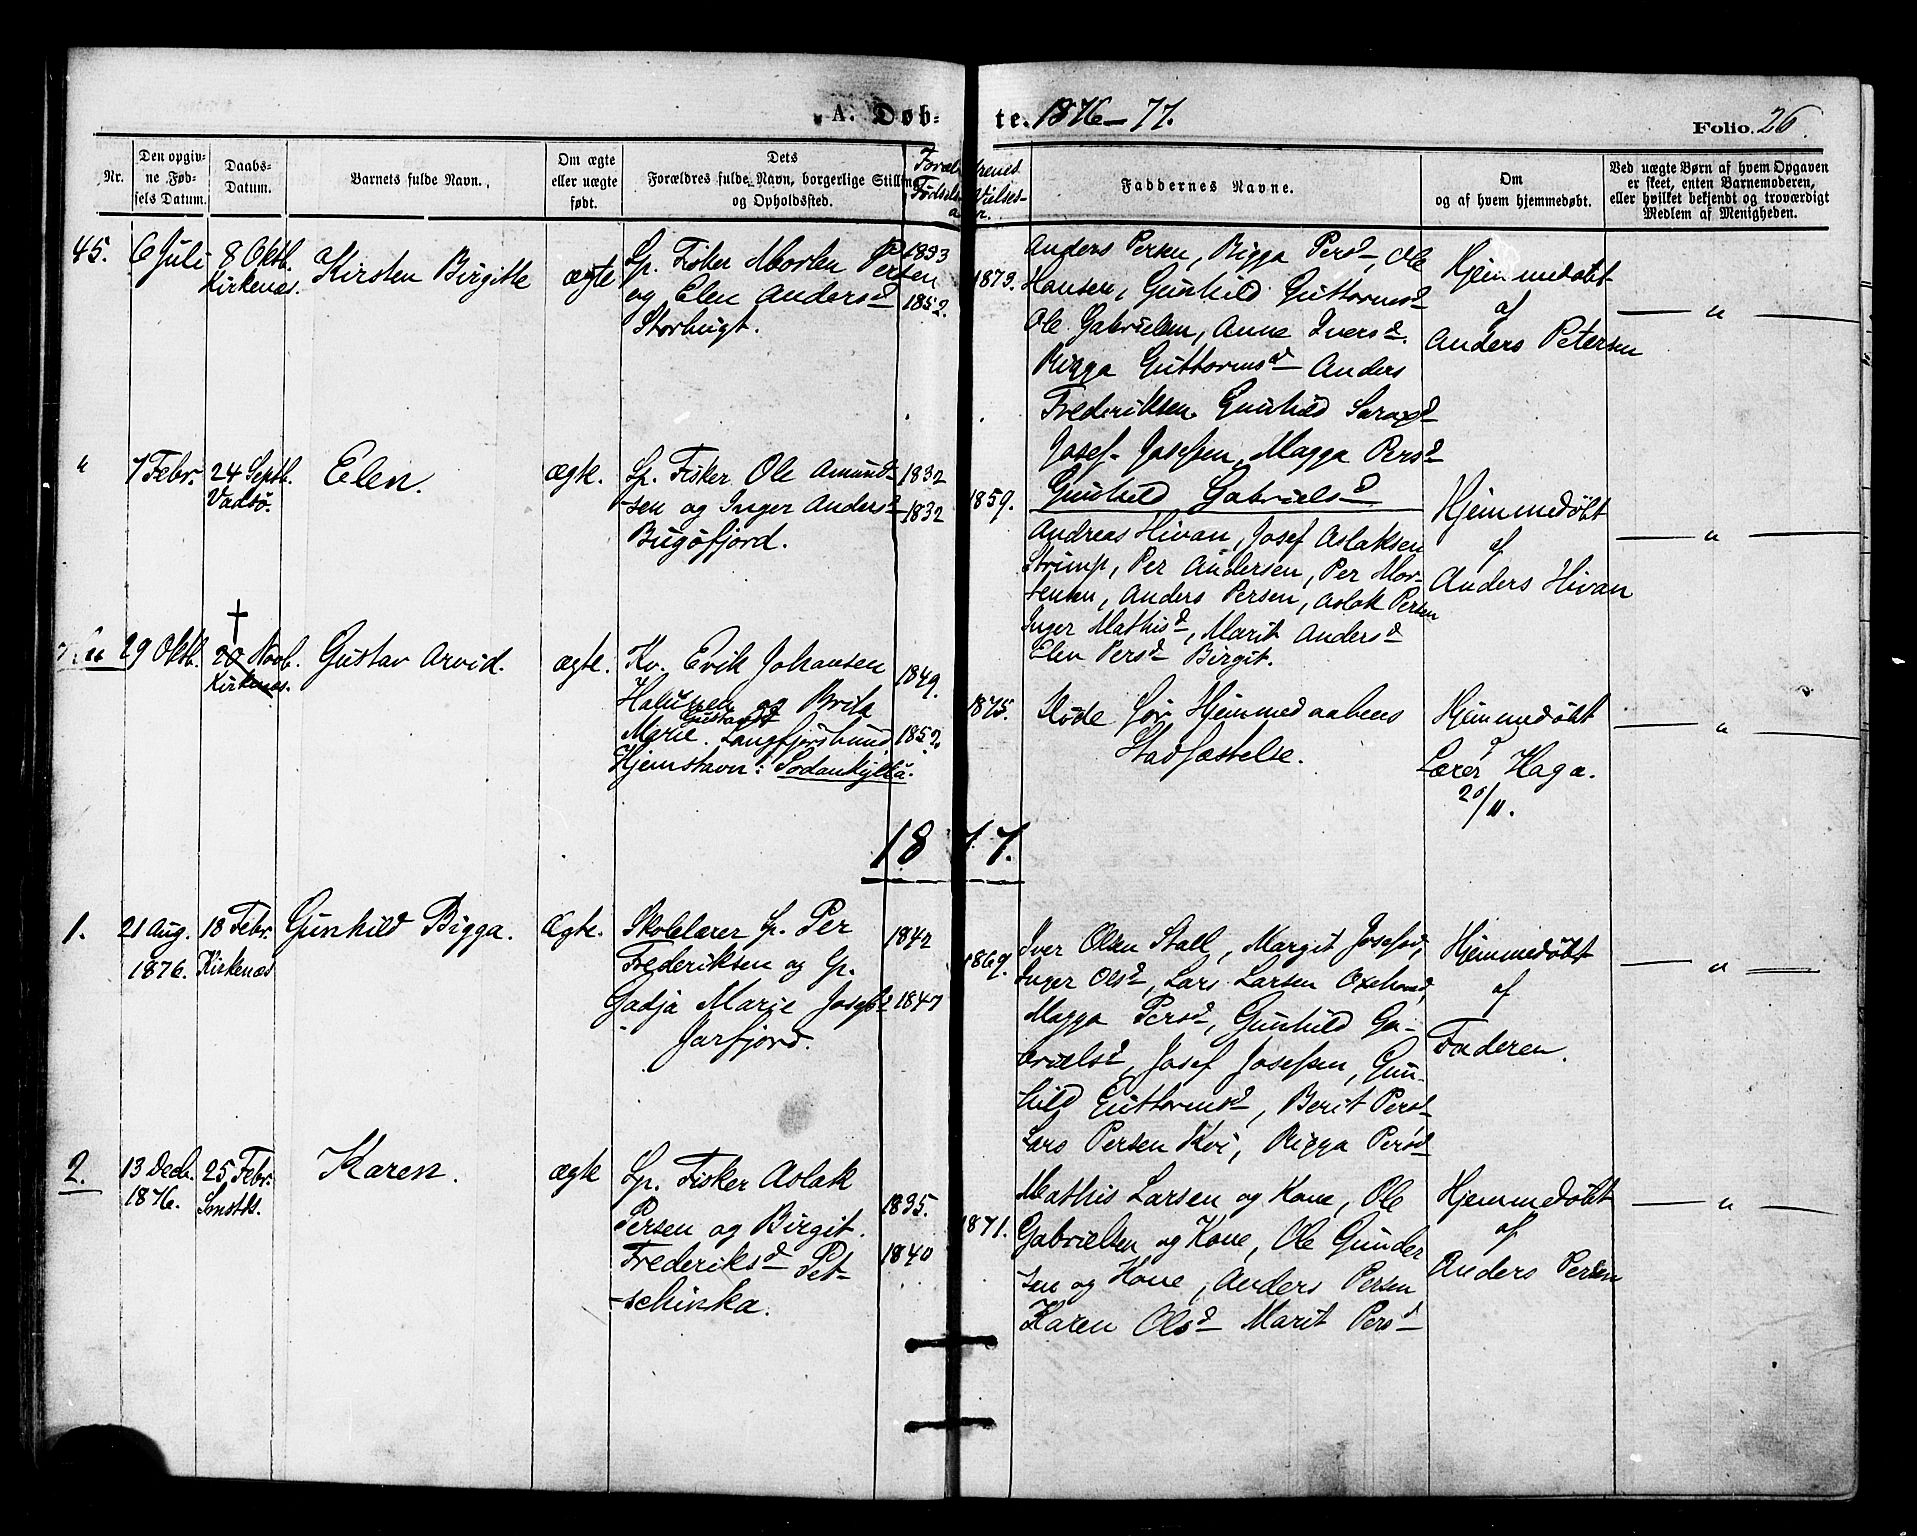 A. Døbte. 1876-77.
Folio. 26.
Nr.
Den opgivne Fødsels Datum.
Daabs-Datum.
Barnets fulde Navn.
Om ægte eller uægte født.
Dets Forældres fulde Navn, borgerlige Stilling og Opholdssted.
Faddernes Navne.
Om og af hvem hjemmedøbt.
Ved uægte Børn af hvem Opgaven er skeet, enten Barnemoderen, eller hvilket bekjendt og troværdigt Medlem af Menigheden.
45.
6 Juli
8 Oktb.
Kirkenæs.
Kirsten Birgitte
ægte
Lp. Fisker Morten Persen
og Elen Andersd
Storbugt.
1833
1852.
1873.
Anders Persen, Bigga Persd, Ole
Hansen, Gunhild Guttormsd
Ole Gabrielsen, Anne Iversd.
Bigga Guttormsd Anders
Frederiksen Gunhild
Josef Josefsen, Magga Persd
Gunhild Gabrielsd
Hjemmedøbt
af
Anders Petersen
— " —
"
7 Febr.
24 Septb.
Vadsö.
Elen.
ægte.
Lp. Fisker Ole Amund-
-sen og Inger Andersd
Bugöfjord.
1832
1832
1859.
Andreas Hivan, Josef Aslaksen
Strimp, Per Andersen, Per Mor-
tensen, Anders Persen, Aslak Persen
Inger Mathisd, Marit Andersd
Elen Persd Birgit.
Hjemmedøbt
af
Anders Hivan
— " —
29 Oktb.
20 Novb.
Kirkenæs.
Gustav Arvid.
ægte.
Kv. Erik Johansen
og Brita
Gustavsd
Marie. Langfjordbund
Hjemstavn: Sodankylä.
1849.
1852.
1875.
Døde før Hjemmedaabens
Stadfæstelse.
Hjemmedøbt
af
Lærer Haga.
20/11.
— " —
1877.
1.
21 Aug.
1876.
18 Febr.
Kirkenæs
Gunhild Bigga.
Ægte.
Skolelærer Lp. Per
Frederiksen og Lp.
Gadja Marie Josefsd
Jarfjord.
1842
1847
1869.
Iver Olsen Stall, Margit Josefsd,
Inger Olsd, Lars Larsen Oxehoved,
Magga Persd, Gunhild Ga-
brielsd, Josef Josefsen, Gun-
hild Guttormsd, Berit Persd
Lars Persen Kvi, Bigga Persd
Hjemmedøbt
af
Faderen.
— " —
2.
13 Decb.
1876.
25 Febr.
Karen.
ægte
Lp. Fisker Aslak
Persen og Birgit
Frederiksd Pet-
-schinka.
1835.
1840
1871.
Mathis Larsen og Kone, Ole
Gabrielsen og Kone, Ole Gunder
sen og Kone, Anders Persen
Karen Olsd Marit Persd
Hjemmedøbt
af
Anders Persen
— " —